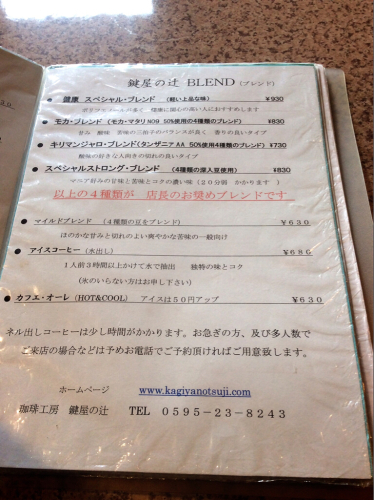 鍵屋の辻 BLEND（ブレンド）
● 健康 スペシャル・ブレンド （軽い上品な味） ¥930
ポリフェノールが多く 健康に関心の高い人におすすめします
● モカ・ブレンド（モカ・マタリNO9 50%使用の4種類のブレンド） ¥830
甘み 酸味 苦味の三拍子のバランスが良く 香りの良いタイプ
● キリマンジャロ・ブレンド(タンザニアAA 50%使用4種類のブレンド) ¥730
酸味の好きな人向きの切れの良いタイプ
● スペシャルストロング・ブレンド （4種類の深入豆使用） ¥830
マニア好みの甘味と苦味とコクの濃い味（２０分弱 かかります ）
以上の４種類が 店長のお奨めブレンドです
● マイルドブレンド （４種類の豆をブレンド） ￥６３０
ほのかな甘みと切れのよい爽やかな苦味の一般向け
● アイスコーヒー（水出し） ￥６８０
１人前３時間以上かけて水で抽出 独特の味とコク
（氷のいらない方はお申し下さい）
● カフェ・オーレ（HOT&COOL） アイスは５０円アップ ￥６３０
ネル出しコーヒーは少し時間がかかります。お急ぎの方、及び多人数で
ご来店の場合などは予めお電話でご予約頂ければご用意致します。
ホームページ www.kagiyanotsuji.com
珈琲工房 鍵屋の辻 TEL ０５９５－２３－８２４３